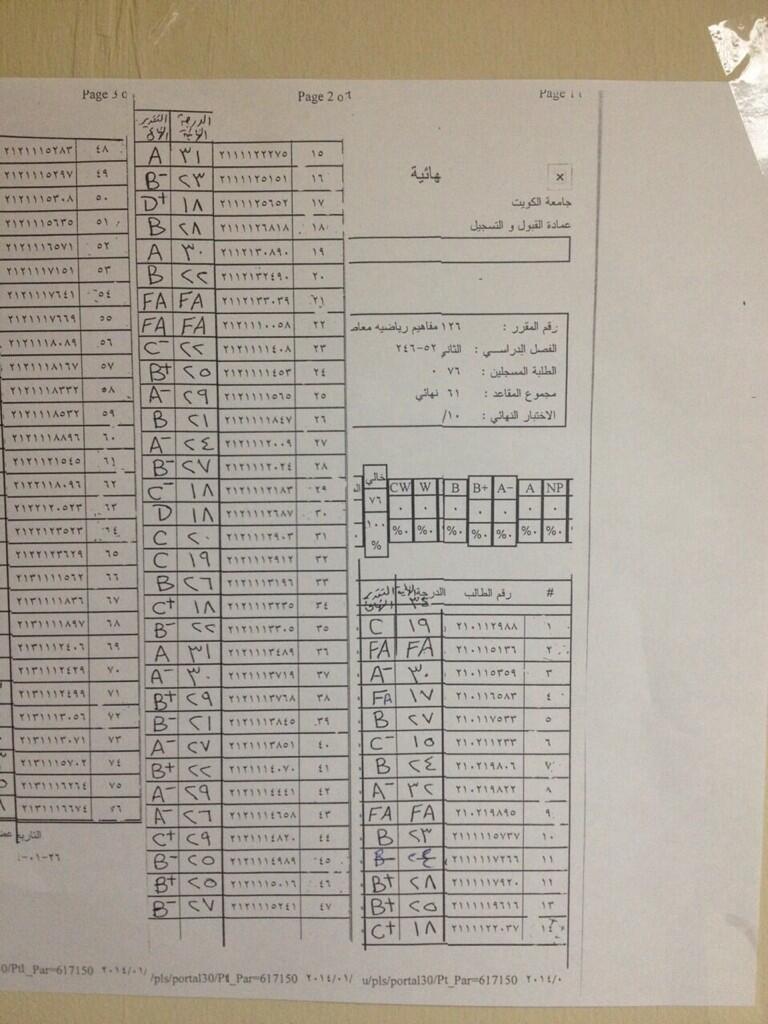 Page 3 o
Page 2 o
Page 1
التقدير الدرجة
A ٣١ ٢١١١١٢٢٢٧٥ ١٥
B- ٢٣ ٢١١١١٢٥١٥١ ١٦
D+ ١٨ ٢١١١١٢٥٦٥٢ ١٧
B ٢٨ ٢١١١١٢٦٨١٨ ١٨
A ٣٠ ٢١١٢١٣٠٨٩٠ ١٩
B ٢٢ ٢١١٢١٣٢٤٩٠ ٢٠
FA FA ٢١١٢١٣٣٠٣٩ ٢١
FA FA ٢١٢١١١٠٠٥٨ ٢٢
C- ٢٢ ٢١٢١١١١٤٠٨ ٢٣
B+ ٢٥ ٢١٢١١١١٤٥٣ ٢٤
A- ٢٩ ٢١٢١١١١٥٦٥ ٢٥
B ٢١ ٢١٢١١١١٨٤٧ ٢٦
A- ٢٤ ٢١٢١١١٢٠٠٩ ٢٧
B- ٢٧ ٢١٢١١١٢٠٢٤ ٢٨
C- ١٨ ٢١٢١١١٢١٨٣ ٢٩
D ١٨ ٢١٢١١١٢٦٨٧ ٣٠
C ٢٠ ٢١٢١١١٢٩٠٣ ٣١
C ١٩ ٢١٢١١١٢٩١٢ ٣٢
B ٢٦ ٢١٢١١١٣١٩٦ ٣٣
C+ ١٨ ٢١٢١١١٣٢٣٥ ٣٤
B- ٢٢ ٢١٢١١١٣٣٠٥ ٣٥
A ٣١ ٢١٢١١١٣٤٨٩ ٣٦
A- ٣٠ ٢١٢١١١٣٧١٩ ٣٧
B+ ٢٩ ٢١٢١١١٣٧٦٨ ٣٨
B- ٢١ ٢١٢١١١٣٨٤٥ ٣٩
A- ٢٧ ٢١٢١١١٣٨٥١ ٤٠
B+ ٢٢ ٢١٢١١١٤٠٧٠ ٤١
A- ٢٩ ٢١٢١١١٤٤٤١ ٤٢
A- ٢٦ ٢١٢١١١٤٦٥٨ ٤٣
C+ ٢٩ ٢١٢١١١٤٨٢٠ ٤٤
B- ٢٥ ٢١٢١١١٤٩٨٩ ٤٥
B+ ٢٥ ٢١٢١١١٥٠١٦ ٤٦
B- ٢٧ ٢١٢١١١٥٢٤١ ٤٧
هائية
×
جامعة الكويت
عمادة القبول و التسجيل
رقم المقرر : ١٢٦ مفاهيم رياضيه معاص
الفصل الدراسي : الثاني ٥٢-٢٤٦
الطلبة المسجلين : ٧٦
مجموع المقاعد : ٦١ نهائي
الاختبار النهائي : ١٠/
خالي CW W B B+ A- A NP
٧٦ ٠ ٠ ٠ ٠ ٠ ٠ ٠
١٠٠% %٠ %٠ %٠ %٠ %٠ %٠ %٠
# رقم الطالب الدرجة التقدير
C ١٩ ٢١٠١١٢٩٨٨ ١
FA FA ٢١٠١١٥١٣٦ ٢
A- ٣٠ ٢١٠١١٥٣٥٩ ٣
FA ١٧ ٢١٠١١٦٥٨٣ ٤
B ٢٧ ٢١٠١١٧٥٣٣ ٥
C- ١٥ ٢١٠٢١١٢٣٣ ٦
B ٢٤ ٢١٠٢١٩٨٠٦ ٧
A- ٣٢ ٢١٠٢١٩٨٢٢ ٨
FA FA ٢١٠٢١٩٨٩٥ ٩
B ٢٣ ٢١١١١١٥٧٣٧ ١٠
B- ٢٤ ٢١١١١١٧٢٦٦ ١١
B+ ٢٨ ٢١١١١١٧٩٢٠ ١٢
B+ ٢٥ ٢١١١١١٩٦١٦ ١٣
C+ ١٨ ٢١١١١٢٢٠٣٧ ١٤
٢١٢١١١٥٢٨٣ ٤٨
٢١٢١١١٥٢٩٧ ٤٩
٢١٢١١١٥٣٠٨ ٥٠
٢١٢١١١٥٦٣٥ ٥١
٢١٢١١١٦٥٧١ ٥٢
٢١٢١١١٧١٥١ ٥٣
٢١٢١١١٧٦٤١ ٥٤
٢١٢١١١٧٦٦٩ ٥٥
٢١٢١١١٨٠٨٩ ٥٦
٢١٢١١١٨١٦٧ ٥٧
٢١٢١١١٨٣٣٢ ٥٨
٢١٢١١١٨٥٣٢ ٥٩
٢١٢١١١٨٨٩٦ ٦٠
٢١٢١١٢١٥٤٥ ٦١
٢١٢٢١١٨٠٩٦ ٦٢
٢١٢٢١٢٠٥٢٣ ٦٣
٢١٢٢١٢٣٥٢٣ ٦٤
٢١٢٢١٢٣٦٢٩ ٦٥
٢١٣١١١١٥٦٢ ٦٦
٢١٣١١١١٨٣٦ ٦٧
٢١٣١١١١٨٩٧ ٦٨
٢١٣١١١٢٤٠٦ ٦٩
٢١٣١١١٢٤٢٩ ٧٠
٢١٣١١١٢٤٩٩ ٧١
٢١٣١١١٣٠٥٦ ٧٢
٢١٣١١١٣٠٧١ ٧٣
٢١٣١١١٥٧٠٢ ٧٤
٢١٣١١١٦٢٦٤ ٧٥
٢١٣١١١٦٦٧٤ ٧٦
التاريخ
٠١-٢٦
0/Ptl_Par=617150 ٢٠١٤/٠١/
/pls/portal30/Ptl_Par=617150 ٢٠١٤/٠١/
u/pls/portal30/Pt_Par=617150 ٢٠١٤/٠